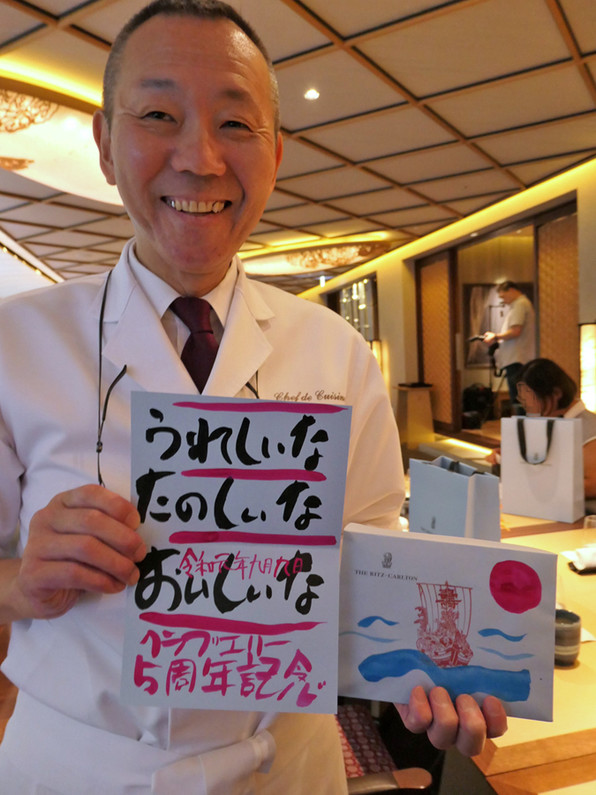 Chef de Cuisine
うれしいな
たのしいな
令和元年九月九日
おいしいな
5周年記念
THE RITZ-CARLTON